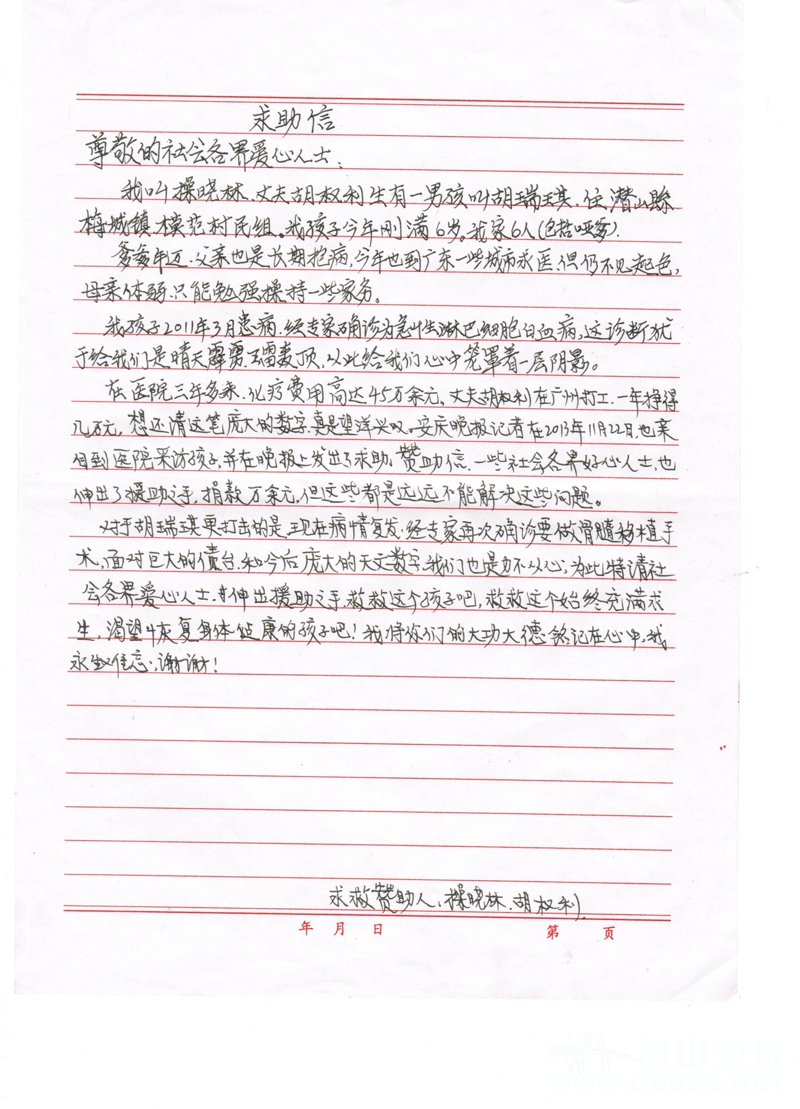 求助信
尊敬的社会各界爱心人士：
我叫操晓林、丈夫胡权利生有一男孩叫胡瑞琪、住潜山县
梅城镇模范村民组。我孩子今年刚满6岁。我家6人(包括哑爹)、
爹爹年迈、父亲也是长期抱病，今年也到广东一些城市求医、但仍不见起色，
母亲体弱、只能勉强操持一些家务。
我孩子2011年3月患病、经专家确诊为急性淋巴细胞白血病，这诊断犹
于给我们是晴天霹雳、五雷轰顶、以此给我们心中笼罩着一层阴影。
在医院三年多来、化疗费用高达45万余元、丈夫胡权利在广州打工、一年挣得
几万元，想还清这笔庞大的数字、真是望洋兴叹。安庆晚报记者在2013年11月22日，也亲
自到医院采访孩子，并在晚报上发出了求助、赞助信、一些社会各界好心人士，也
伸出了援助之手，捐款万余元、但这些都是远远不能解决这些问题。
对于胡瑞琪更打击的是、现在病情复发、经专家再次确诊要做骨髓移植手
术，面对巨大的债台、和今后庞大的天文数字、我们也是力不从心、为此特请社
会各界爱心人士、并伸出援助之手，救救这个孩子吧，救救这个始终充满求
生、渴望恢复身体健康的孩子吧！我将你们的大功大德铭记在心中、我
永难忘，谢谢！
求救赞助人、操晓林、胡权利
年 月 日
第 页